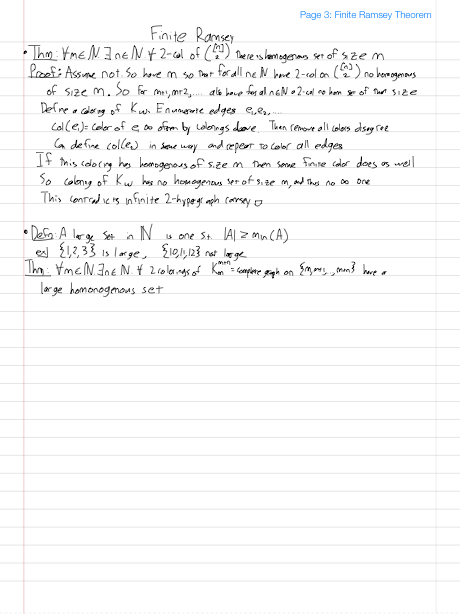 Page 3: Finite Ramsey Theorem
Finite Ramsey
• Thm: ∀m∈ℕ ∃n∈ℕ ∀ 2-col of ([n] 2) there is homogenous set of size m
Proof: Assume not. So have m so that for all n∈ℕ have 2-col on ([n] 2) no homogenous
of size m. So for m+1, m+2, .... also have for all n∈ℕ a 2-col no hom set of that size
Define a coloring of Kω. Enumerate edges e1, e2, ....
col(e1) = color of e1 ∞ often by colorings above. Then remove all colors disagree
Can define col(e2) in same way and repeat to color all edges
If this coloring has homogenous of size m then some finite color does as well
So coloring of Kω has no homogenous set of size m, and thus no ∞ one
This contradicts infinite 2-hypergraph ramsey □
• Defn: A large set in ℕ is one s.t. |A| ≥ min(A)
ex) {1,2,3} is large, {10,11,12} not large
Thm: ∀m∈ℕ ∃n∈ℕ ∀ 2 colorings of = complete graph on have a
large homonogenous set